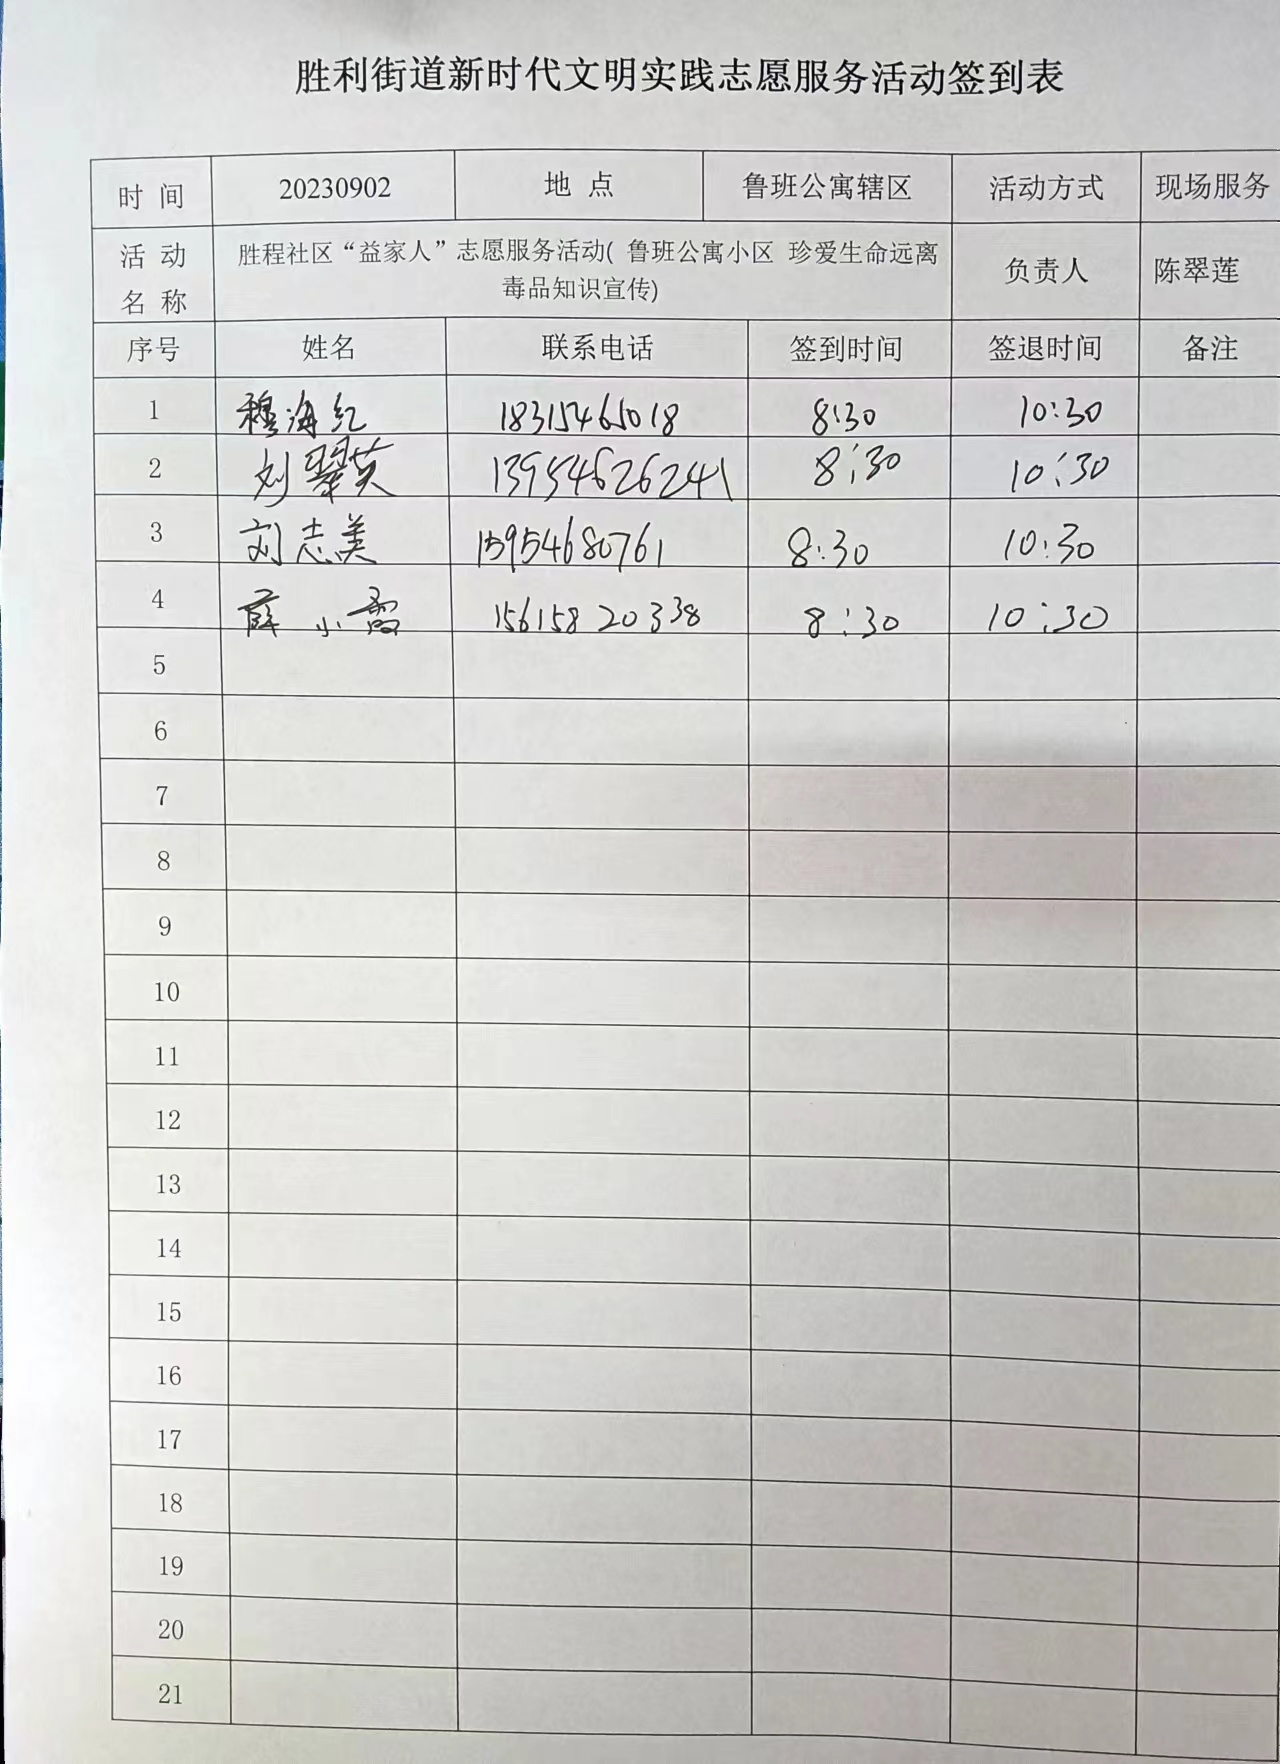 胜利街道新时代文明实践志愿服务活动签到表
时 间 20230902 地 点 鲁班公寓辖区 活动方式 现场服务
活 动 名 称 胜程社区“益家人”志愿服务活动( 鲁班公寓小区 珍爱生命远离
毒品知识宣传) 负责人 陈翠莲
序号 姓名 联系电话 签到时间 签退时间 备注
1 穆海红 18315465018 8:30 10:30
2 刘翠英 13954626241 8:30 10:30
3 刘志美 15954680761 8:30 10:30
4 薛小霞 15615820338 8:30 10:30
5
6
7
8
9
10
11
12
13
14
15
16
17
18
19
20
21